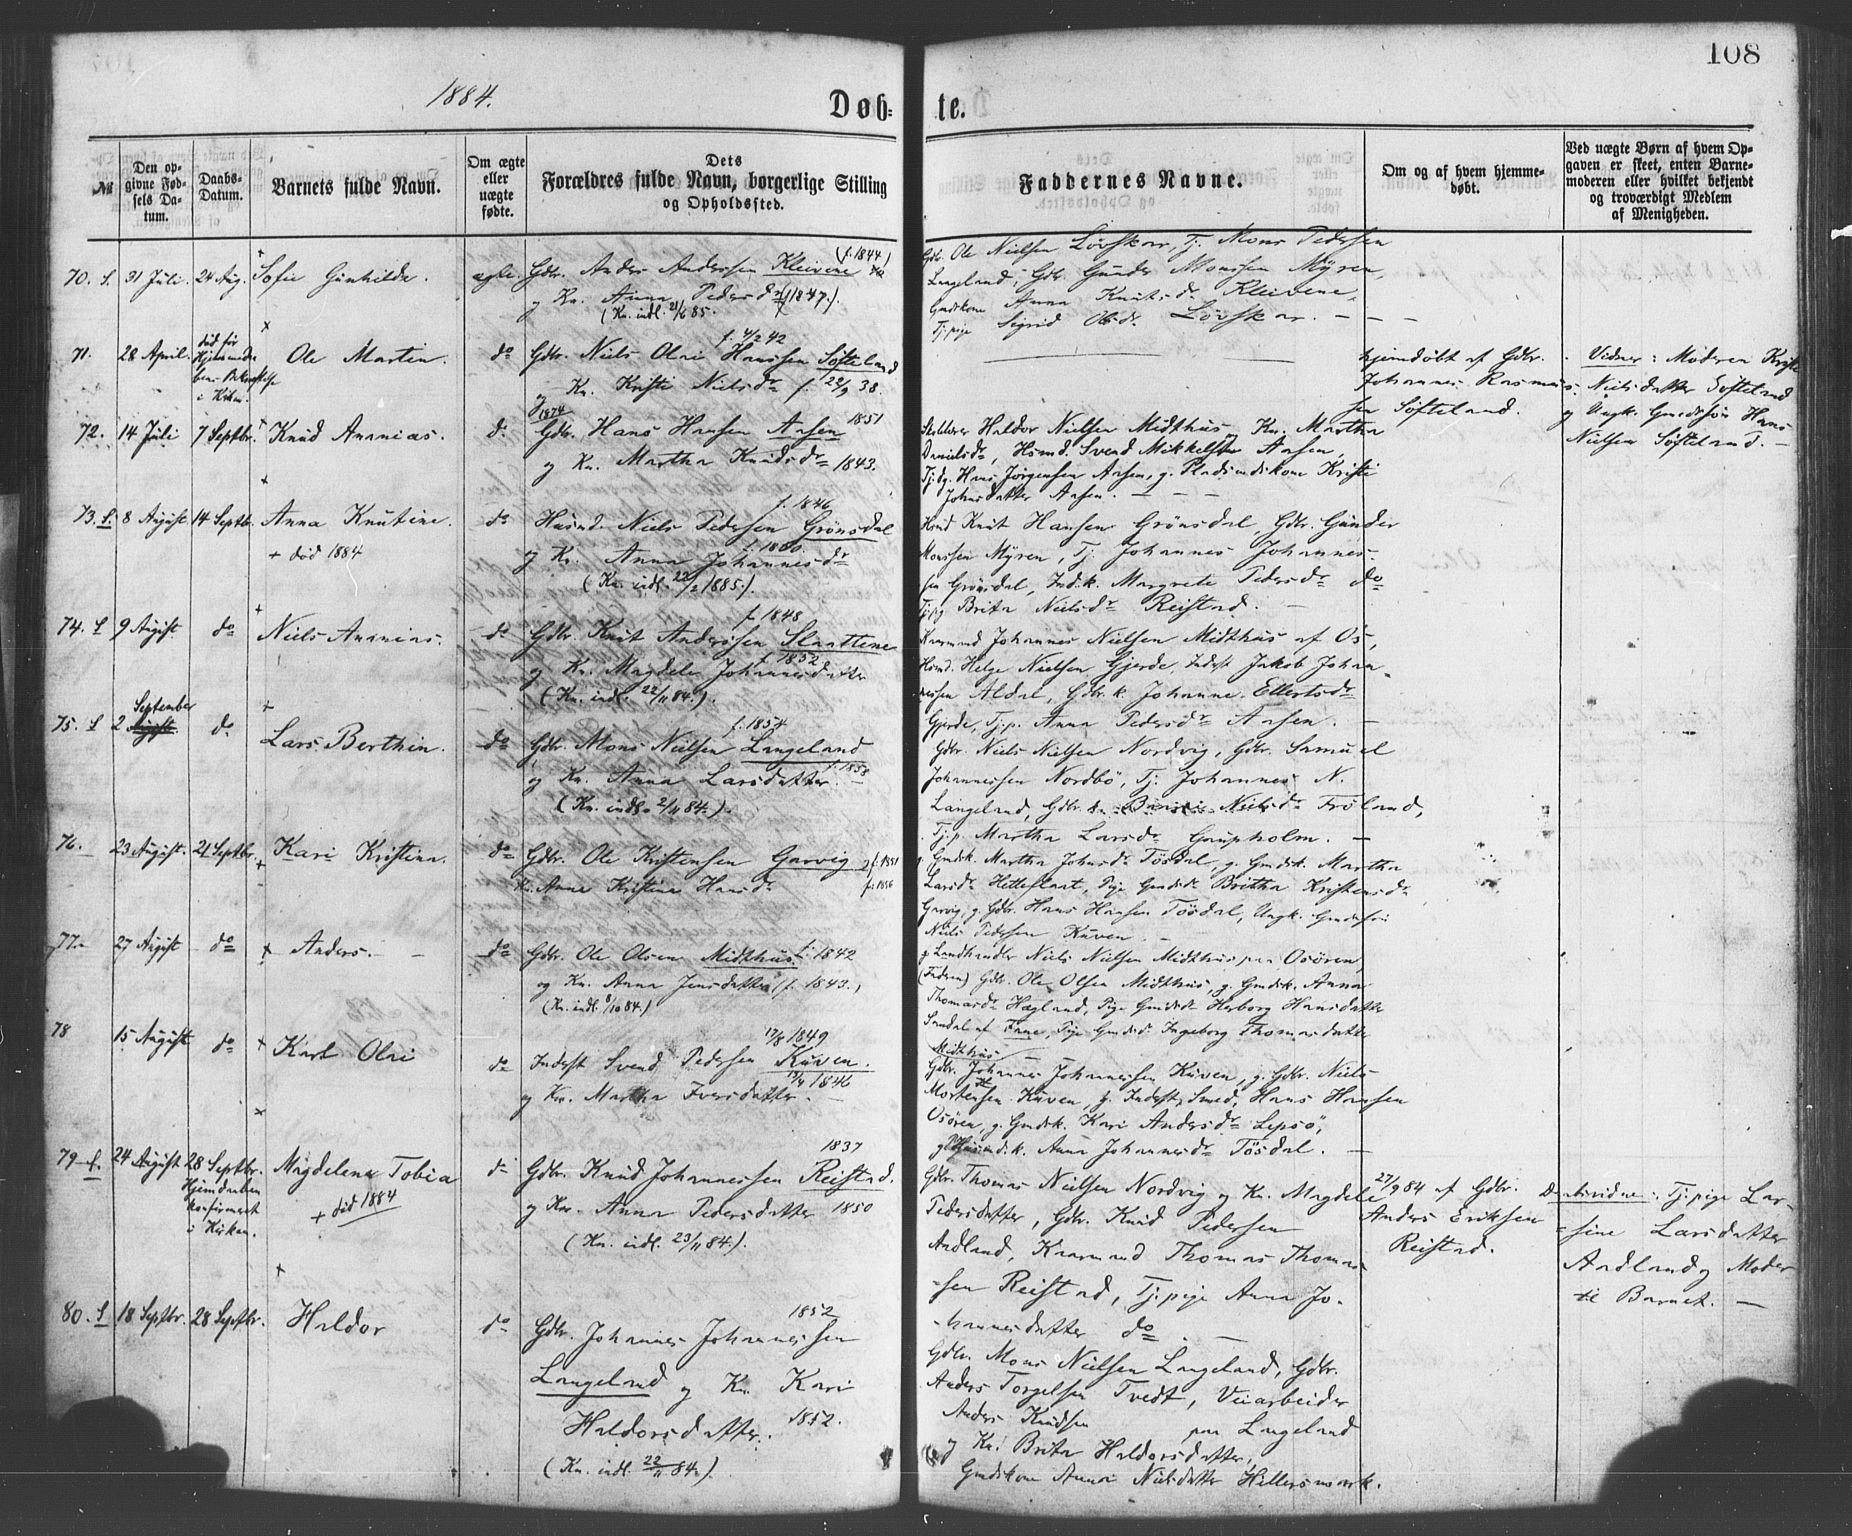 108
1884.
Døb- te.
№
Den opgivne Fødsels Datum.
Daabs-Datum.
Barnets fulde Navn.
Om ægte eller uægte fødte.
Dets Forældres fulde Navn, borgerlige Stilling og Opholdssted.
Faddernes Navne.
Om og af hvem hjemmedøbt.
Ved uægte Børn af hvem Opgaven er skeet, enten Barnemoderen eller hvilket bekjendt og troværdigt Medlem af Menigheden.
70. S. 31 Juli. 24 Aug. Sofie Gunhilde. ægte.
Gdbr. Anders Anderssen Kleivene (f. 1844)
og Kn. Anna Pedersdr (1847).
(Kn. indl. 21/6 85.
Gdb. Ole Nielsen Lövskar, Tj. Mons Pedersen
Langeland, Gdb. Gunder Monssen Myren,
Gmdskone Anna Knutsdr Kleivene,
Tj.pige Sigrid Olsdr Lövskar. — — —
71. 28 April. Ole Martin. do
Gdbr. Niels Olai Hanssen Söfteland f. 4/2 42
og Kn. Kristi Nielsdr f. 22/9 38.
1874
hjemdöbt af Gdbr.
Johannes Rasmus-
sen Söfteland.
Vidner: Moderen Kristi
Nielsdatter Söfteland
og Ungk. Gmdssön Hans
Nielsen Söfteland. —
72. 14 Juli 7 Septbr. Knud Ananias. do
Gdbr. Hans Hansen Aasen 1851
og Kn. Martha Knudsdr 1843.
Skolelærer Haldor Nielsen Midthus, Kn. Martha
Danielsdr, Hsmd. Svend Mikkelsen Aasen,
Tj.dg. Hans Jörgensen Aasen, g. Pladsmdskone Kristi
Johnsdatter Aasen. — — —
73. S. 8 August 14 Septbr. Anna Knutine. do
+ död 1884
Husmd. Niels Pedersen Grönsdal f. 1846
og Kn. Anna Johannesdr f. 1860
(Kn. indl. 22/2 1885.).
Hsmd Knut Hansen Grönsdal, Gdbr. Gunder
Monssen Myren, Tj. Johannes Johannes-
sen Grönsdal, Ind.k. Margrete Pedersdr do
Tj.pg Brita Nielsdr Reistad. —
74. S 9 August do Niels Ananias. do
Gdbr. Knut Anderssen Slaattene f. 1848
og Kn. Magdele Johannesdatter f. 1852
(Kn. indl. 22/11 84.).
Kaarmand Johannes Nielsen Midthus af Os,
Hsmd. Helge Nielsen Gjerde, Indest Jakob Johan-
nessen Aldal, Gdbr.k. Johanne Ellertsdr
Gjerde, Tj.p. Anna Pedersdr Aasen. —
75. S 2 September do Lars Berthin. do
Gdbr. Mons Nielsen Langeland f. 1854
og Kn. Anna Larsdatter. f. 1858
(Kn. indl. 2/11 84.).
Gdbr. Niels Nielsen Nordvig, Gdbr. Samuel
Johannessen Nordbö, Tj. Johannes N.
Langeland, Gdbr. kn Nielsdr Fröland,
Tj.p. Martha Larsdr Gaupholm. —
76. 23 August. 21 Septbr. Kari Kristina. do
Gdbr. Ole Kristensen Garvig og f. 1851
Kn. Anna Kristina Hansdr f. 1856
g. Gmdsk. Martha Johnsdr Tösdal, g. Gmdsk. Martha
Larsdr Hetleflaat, Pige Gmdsdr Britha Kristensdr
Garvig, g. Gdbr. Hans Hansen Tösdal, Ungk. Gmdssön
Niels Pedersen Kuven. —
77. 27 August do Anders. — do
Gdbr. Ole Olsen Midthus. f. 1842
og Kn. Anna Jensdatter (f. 1843.)
(Kn. indl. 8/10 84.)
g. Landhandler Niels Nielsen Midthus paa Osören,
(Faderen) Gdbr. Ole Olsen Midthus, g. Gmdsk. Anna
Thomasdr Hægland, Pige Gmdsdr Herborg Hansdatter
Sandal af Fane, Pige Gmdsdr Ingeborg Thomasdatter
Midthus —
78 15 August do Karl Olai do
Indest Svend Pedersen Kuven. 17/8 1849
og Kn. Martha Iversdatter. 13/4 1846
Gdbr. Johannes Johannessen Kuven, g. Gdbr. Niels
Mortensen Kuven, g. Indest, Smed, Hans Hansen
Osören, g. Gmdsk. Kari Andersdr Lepsö,
g. Husmdsk. Anna Johannesdr Tösdal. —
79 S. 24 August 28 Septbr. Magdelena Tobia do
Hjemdaaben
konfirmeret
i Kirken.
+ död 1884
Gdbr. Knud Johannessen Reistad. 1837
og Kn. Anna Pedersdatter 1850
(Kn. indl. 23/11 84.).
Gdbr. Thomas Nielsen Nordvig og Kn. Magdele
Pedersdatter, Gdbr. Knud Pedersen
Aadland, Kaarmand Thomas Thomas-
sen Reistad, Tj.pige Anna Jo-
hannesdatter do. —
27/9 84 af Gdbr.
Anders Eriksen
Reistad.
Daabsvidne: Tj.pige Lar-
sine Larsdatter
Aadland og Moder
til Barnet. —
80. S 18 Septbr. 28 Septbr. Haldor do
Gdbr. Johannes Johannessen 1852
Langeland og Kn. Kari
Haldorsdatter. 1852.
(Kn. indl. 22/11 84.).
Gdbr. Mons Nielsen Langeland, Gdbr.
Anders Torgelsen Tvedt, Veiarbeider
Anders Knudsen paa Langeland
og Kn. Brita Haldorsdatter,
Gmdskone Anna Nielsdatter Hillersmark.